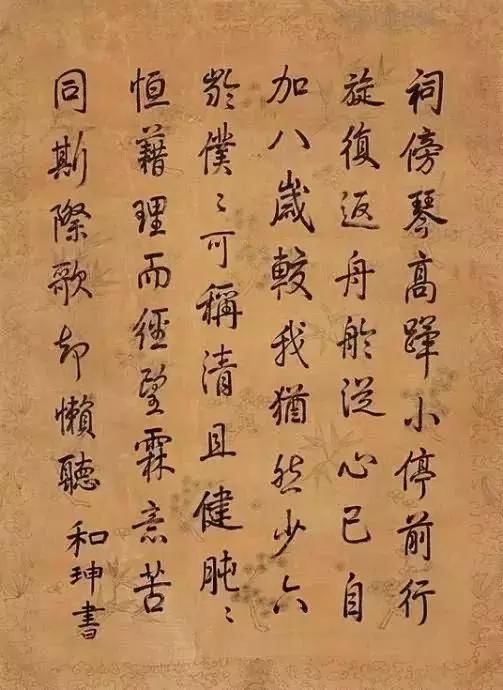 祠傍琴高蹕小停前行
旋復返舟舲從心已自
加八歲較我猶然少六
齡僕僕可稱清且健肫肫
恒藉理而經望霖意苦
同斯際歌却懶聽
和珅書